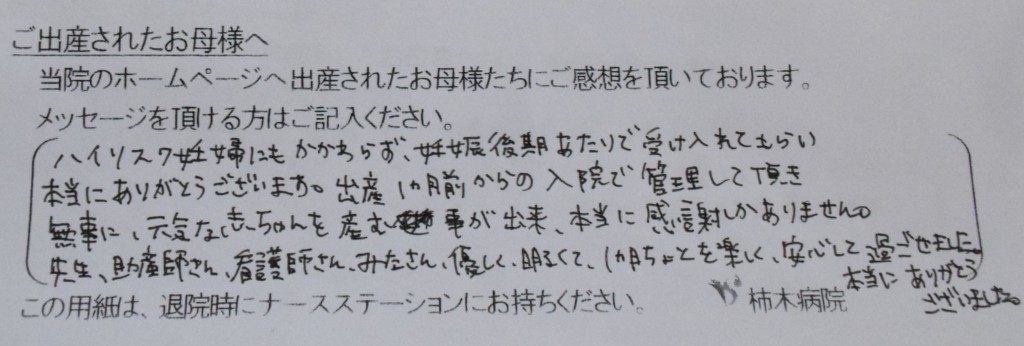 ご出産されたお母様へ
当院のホームページへ出産されたお母様たちにご感想を頂いております。
メッセージを頂ける方はご記入ください。
ハイリスク妊婦にもかかわらず、妊娠後期あたりで受け入れてもらい
本当にありがとうございます。出産1ヵ月前からの入院で管理して頂き
無事に、元気な赤ちゃんを産む事が出来、本当に感謝しかありません。
先生、助産師さん、看護師さん、みなさん、優しく、明るくて、1ヵ月ちょっとを楽しく、安心して過ごせました
本当にありがとう
ございました。
この用細は、退院時にナースステーションにお持ちください。
柿木病院